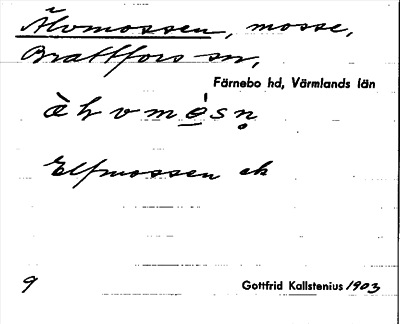 Älvmossen, mosse,
Brattfors sn,
Färnebo hd, Värmlands län
Elfmossen ek
9
Gottfrid Kallstenius 1903